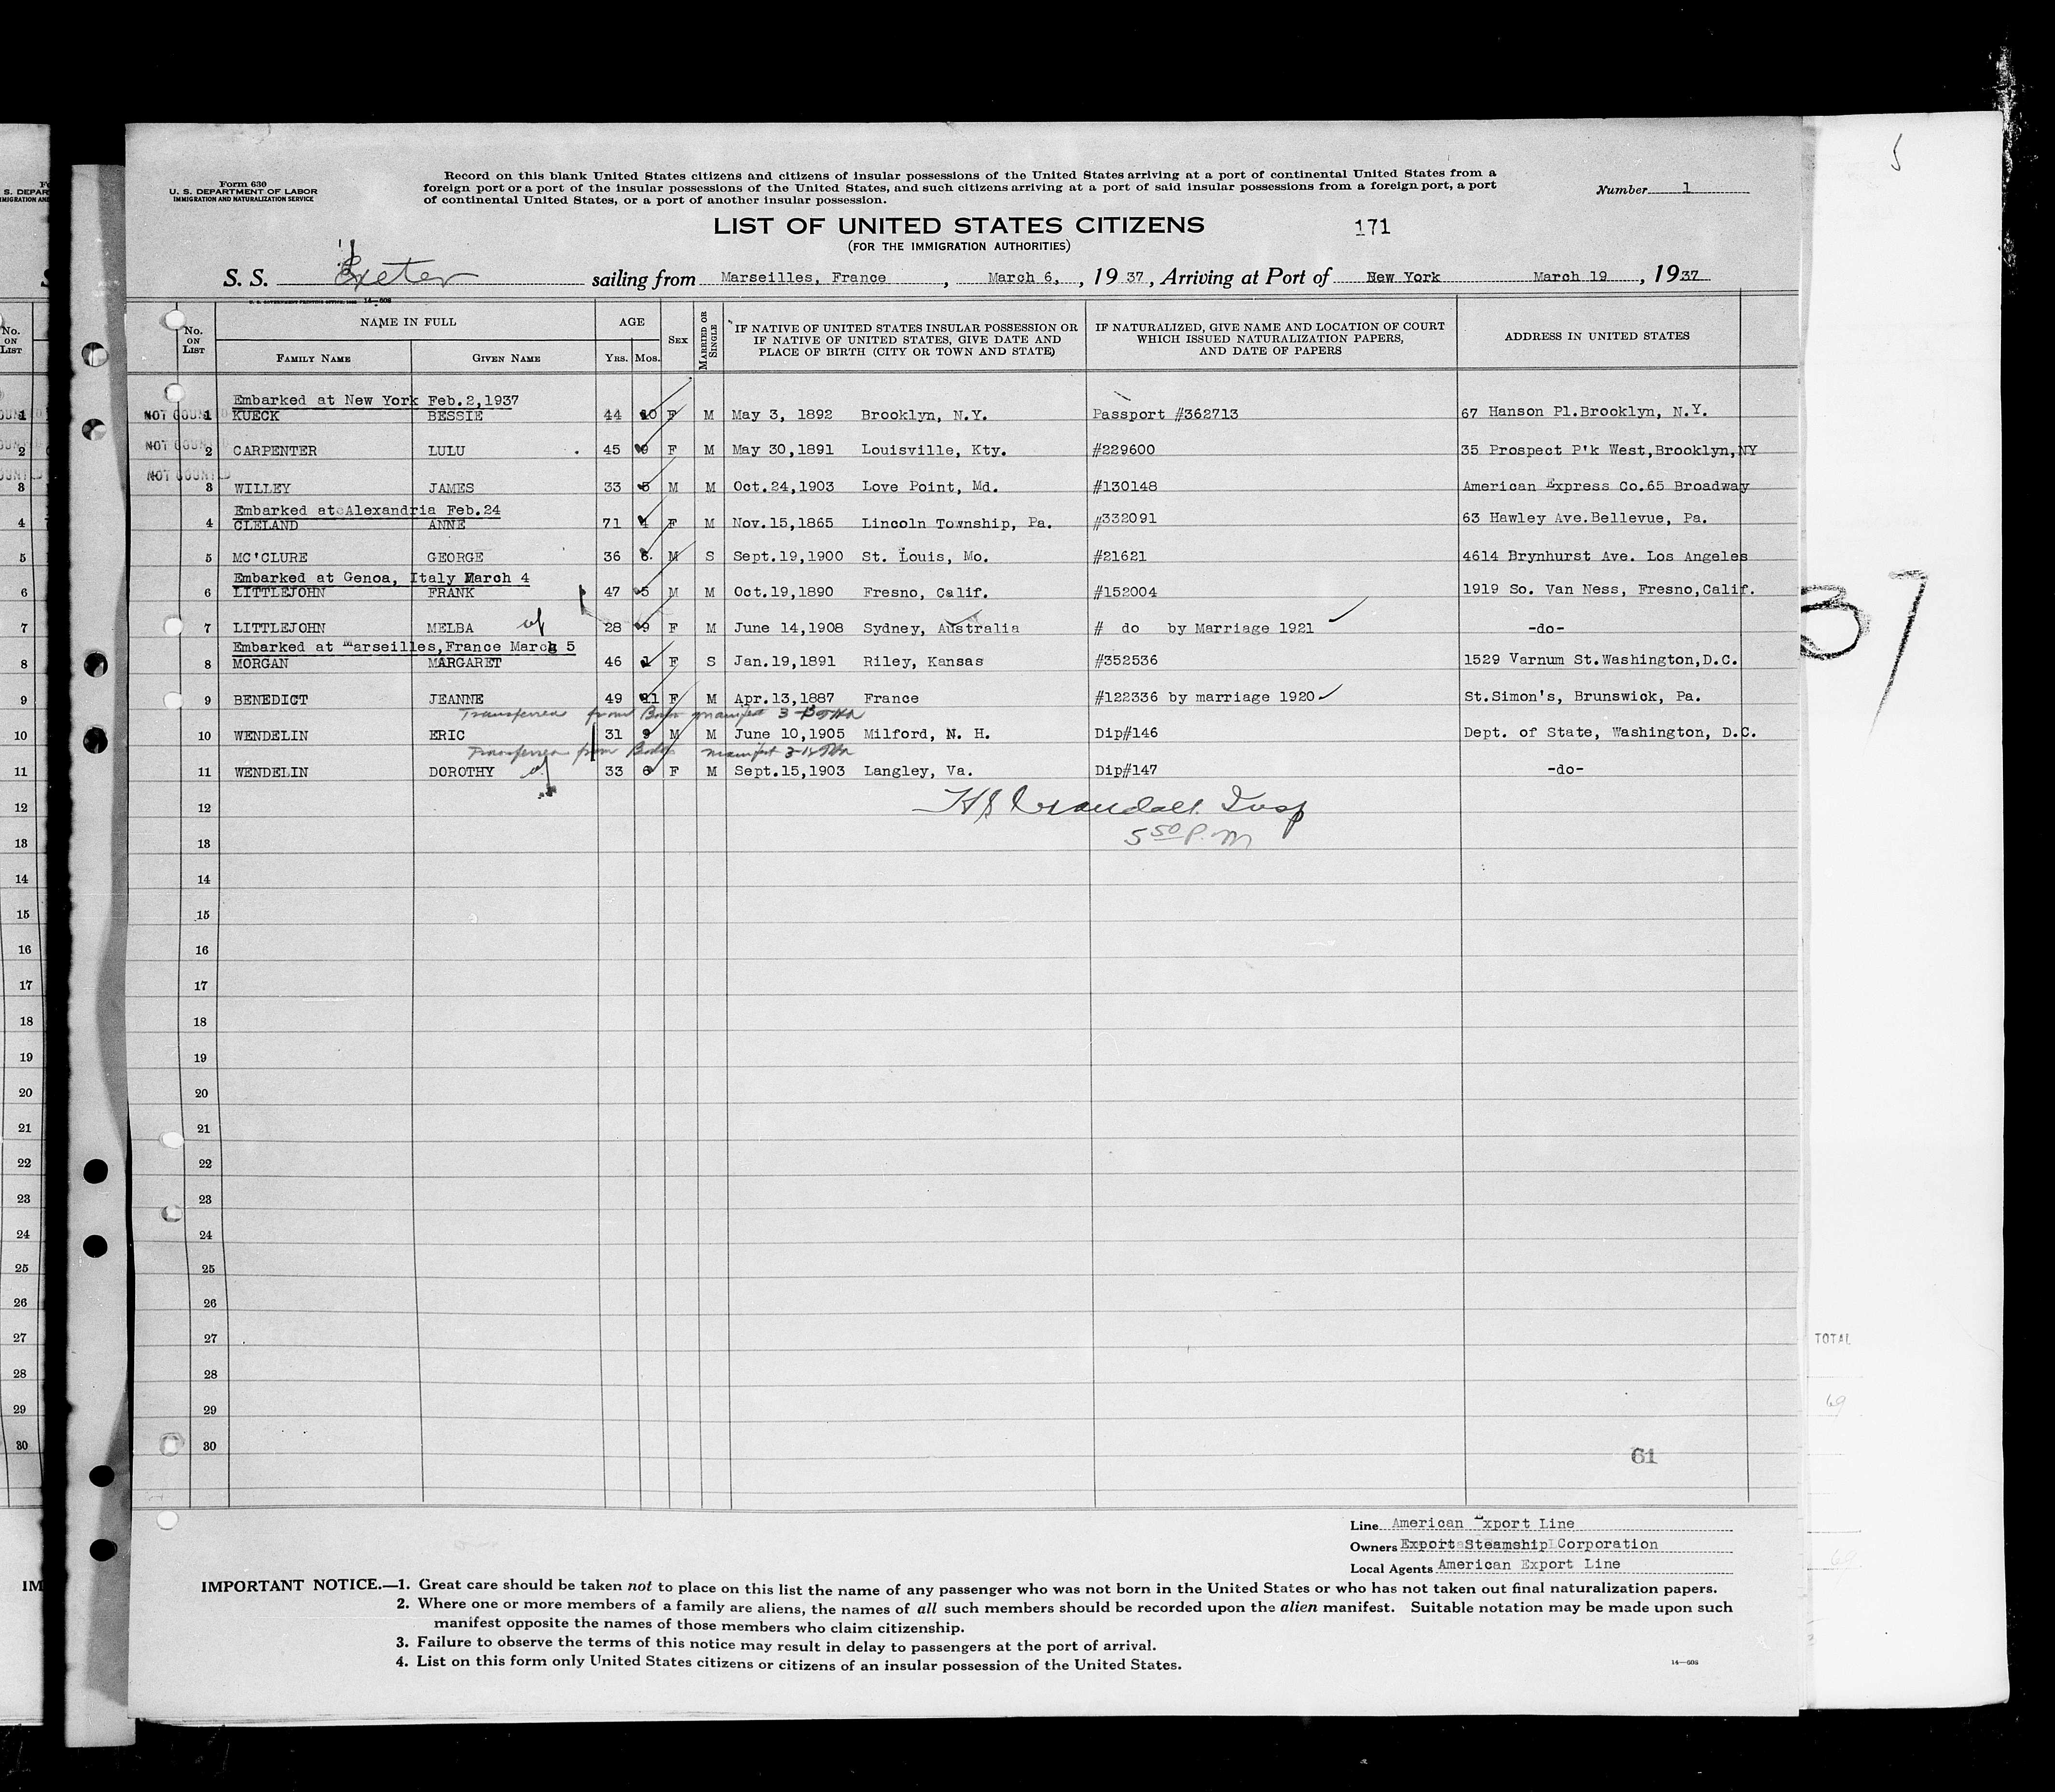 Form 630
U. S. DEPARTMENT OF LABOR
IMMIGRATION AND NATURALIZATION SERVICE
Record on this blank United States citizens and citizens of insular possessions of the United States arriving at a port of continental United States from a
foreign port or a port of the insular possessions of the United States, and such citizens arriving at a port of said insular possessions from a foreign port, a port
of continental United States, or a port of another insular possession.
Number 1
LIST OF UNITED STATES CITIZENS 171
(FOR THE IMMIGRATION AUTHORITIES)
S. S. Exeter sailing from Marseilles, France, March 6, , 19 37, Arriving at Port of New York March 19, 1937
No. ON LIST NAME IN FULL AGE SEX MARRIED OR SINGLE IF NATIVE OF UNITED STATES INSULAR POSSESSION OR IF NATIVE OF UNITED STATES, GIVE DATE AND PLACE OF BIRTH (CITY OR TOWN AND STATE) IF NATURALIZED, GIVE NAME AND LOCATION OF COURT WHICH ISSUED NATURALIZATION PAPERS, AND DATE OF PAPERS ADDRESS IN UNITED STATES
FAMILY NAME GIVEN NAME YRS. MOS.
Embarked at New York Feb.2,1937
NOT COUNTED 1 KUECK BESSIE 44 10 F M May 3, 1892 Brooklyn, N.Y. Passport #362713 67 Hanson Pl.Brooklyn, N.Y.
NOT COUNTED 2 CARPENTER LULU 45 9 F M May 30,1891 Louisville, Kty. #229600 35 Prospect P'k West,Brooklyn,NY
NOT COUNTED
3 WILLEY JAMES 33 5 M M Oct.24,1903 Love Point, Md. #130148 American Express Co.65 Broadway
Embarked at Alexandria Feb.24
4 CLELAND ANNE 71 4 F M Nov.15,1865 Lincoln Township, Pa. #332091 63 Hawley Ave.Bellevue, Pa.
5 MC'CLURE GEORGE 36 6 M S Sept.19,1900 St. Louis, Mo. #21621 4614 Brynhurst Ave. Los Angeles
Embarked at Genoa, Italy March 4
6 LITTLEJOHN FRANK 47 5 M M Oct.19,1890 Fresno, Calif. #152004 1919 So. Van Ness, Fresno,Calif.
7 LITTLEJOHN MELBA 28 9 F M June 14,1908 Sydney, Australia # do by Marriage 1921 -do-
Embarked at Marseilles,France March 5
8 MORGAN MARGARET 46 1 F S Jan.19,1891 Riley, Kansas #352536 1529 Varnum St.Washington,D.C.
9 BENEDICT JEANNE 49 11 F M Apr.13,1887 France #122336 by marriage 1920 St.Simon's, Brunswick, Pa.
Transferred from manifest
10 WENDELIN ERIC 31 9 M M June 10,1905 Milford, N. H. Dip#146 Dept. of State, Washington, D.C.
Transferred from manifest
11 WENDELIN DOROTHY 33 6 F M Sept.15,1903 Langley, Va. Dip#147 -do-
12 H S Crandall Insp
13 5 50 P.M
14
15
16
17
18
19
20
21
22
23
24
25
26
27
28
29
30
61
Line American Export Line
Owners Export Steamship Corporation
Local Agents American Export Line
IMPORTANT NOTICE.—1. Great care should be taken not to place on this list the name of any passenger who was not born in the United States or who has not taken out final naturalization papers.
2. Where one or more members of a family are aliens, the names of all such members should be recorded upon the alien manifest. Suitable notation may be made upon such
manifest opposite the names of those members who claim citizenship.
3. Failure to observe the terms of this notice may result in delay to passengers at the port of arrival.
4. List on this form only United States citizens or citizens of an insular possession of the United States.
14—608
37
TOTAL
69